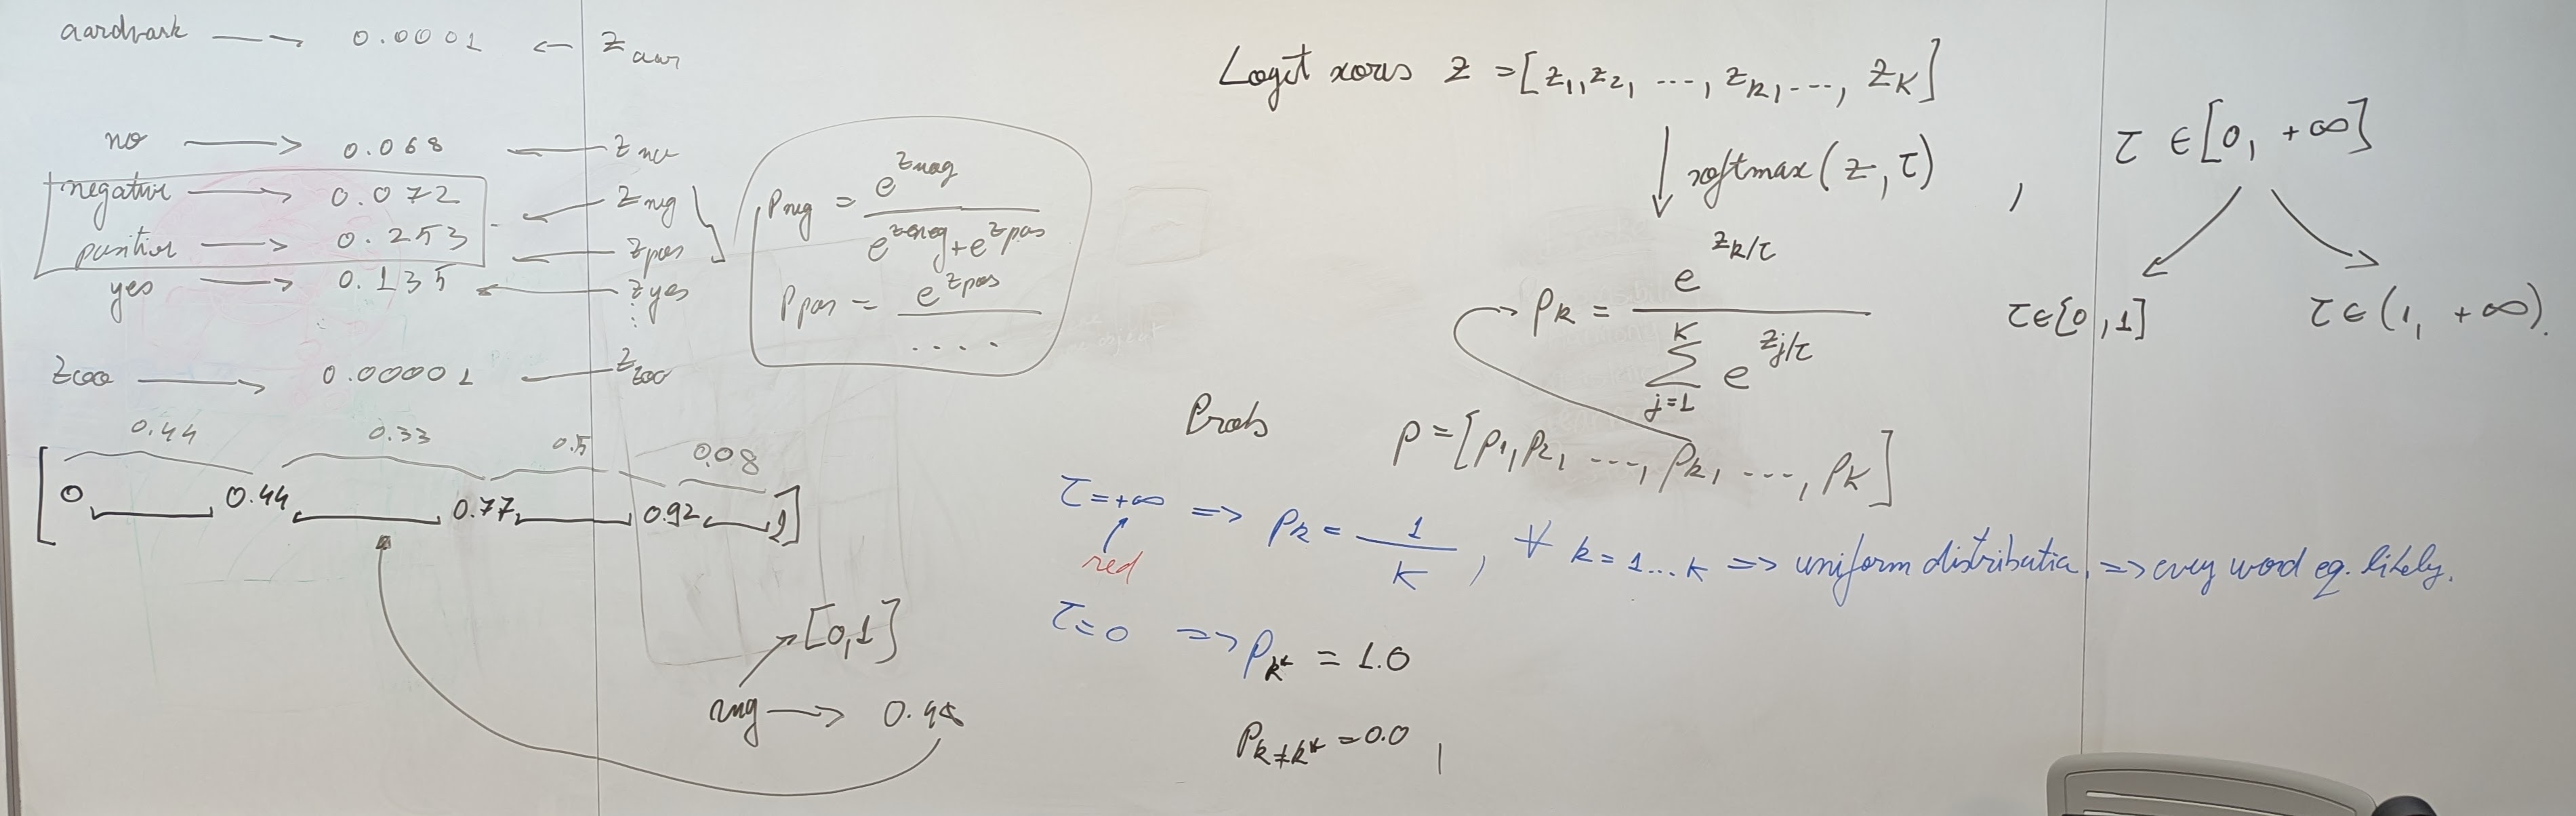 aardvark → 0.0001 ← z_aar
no → 0.068 ← z_no
negative → 0.072 ← z_neg
positive → 0.253 ← z_pos
yes → 0.135 ← z_yes
⋮
zoo → 0.00001 ← z_zoo
P_neg = e^{z_neg} / (e^{z_neg} + e^{z_pos})
P_pos = e^{z_pos} / ....
0.44 0.33 0.5 0.08
[0 0.44 0.77 0.92 1]
[0,1]
rng → 0.45
Logit z = [z_1, z_2, ..., z_k, ..., z_K]
↓ softmax(z, τ) , τ ∈ [0, +∞]
τ ∈ [0, 1] τ ∈ (1, +∞).
p_k = e^{z_k/τ} / Σ_{j=1}^{K} e^{z_j/τ}
Probs p = [p_1, p_2, ..., p_k, ..., p_K]
τ = +∞ => p_k = 1/K , ∀ k = 1...K => uniform distribution => every word eq. likely.
red
τ = 0 => p_{k*} = 1.0
p_{k≠k*} = 0.0